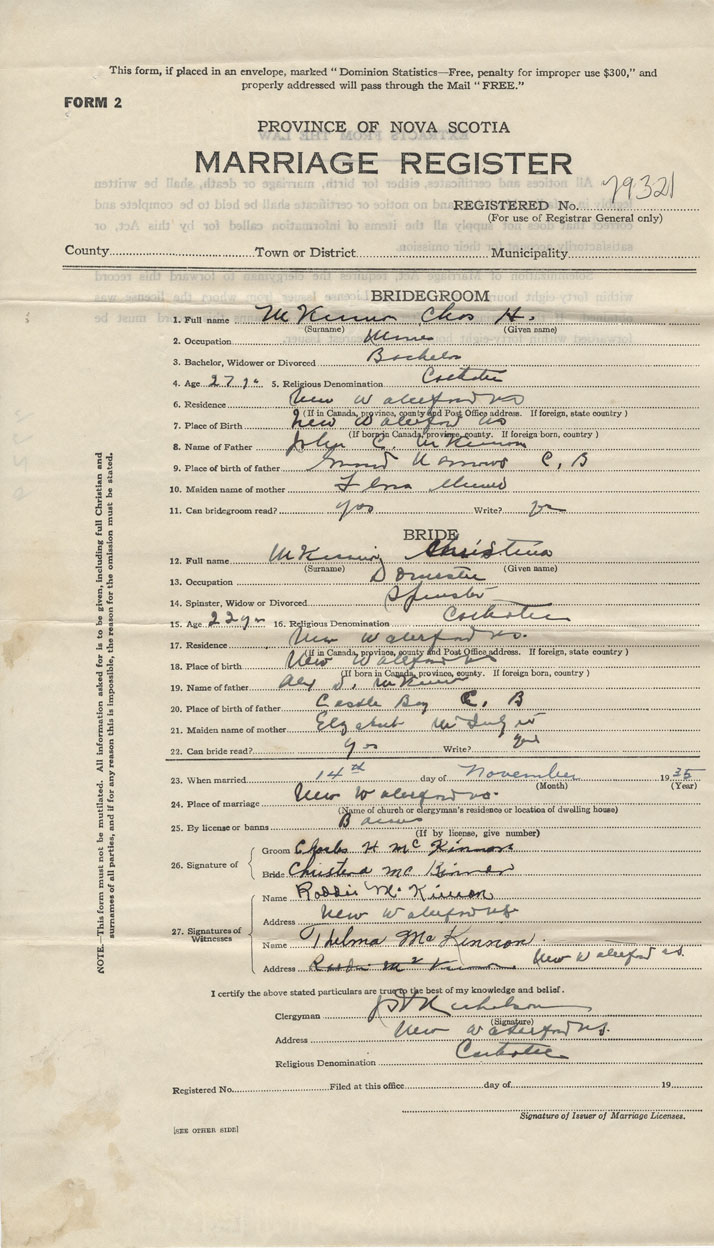 This form, if placed in an envelope, marked "Dominion Statistics—Free, penalty for improper use $300," and
properly addressed will pass through the Mail "FREE."
FORM 2
PROVINCE OF NOVA SCOTIA
MARRIAGE REGISTER
REGISTERED No. 79321
(For use of Registrar General only)
County Town or District Municipality
BRIDEGROOM
1. Full name McKinnon Chas H.
(Surname) (Given name)
2. Occupation Miner
3. Bachelor, Widower or Divorced Bachelor
4. Age 27 yrs 5. Religious Denomination Catholic
6. Residence New Waterford NS
(If in Canada, province, county and Post Office address. If foreign, state country )
7. Place of Birth New Waterford NS
(If born in Canada, province, county. If foreign born, country )
8. Name of Father John C. McKinnon
9. Place of birth of father Grand Narrows C, B
10. Maiden name of mother
11. Can bridegroom read? yes Write? yes
BRIDE
12. Full name McKinnon Christina
(Surname) (Given name)
13. Occupation Domestic
14. Spinster, Widow or Divorced Spinster
15. Age 22 yrs 16. Religious Denomination Catholic
17. Residence New Waterford NS.
(If in Canada, province, county and Post Office address. If foreign, state country )
18. Place of birth New Waterford NS
(If born in Canada, province, county. If foreign born, country )
19. Name of father Alex J. McKinnon
20. Place of birth of father Castle Bay C, B
21. Maiden name of mother
22. Can bride read? yes Write? yes
23. When married 14th day of November 1935
(Month) (Year)
24. Place of marriage New Waterford NS.
(Name of church or clergyman's residence or location of dwelling house)
25. By license or banns Banns
(If by license, give number)
26. Signature of
Groom Charles H McKinnon
Bride Christena McKinnon
27. Signatures of Witnesses
Name Roddie McKinnon
Address New Waterford NS
Name Thelma McKinnon
Address Roddie McKinnon New Waterford NS.
I certify the above stated particulars are true to the best of my knowledge and belief.
Clergyman
(Signature)
Address New Waterford NS.
Religious Denomination Catholic
Registered No. Filed at this office day of 19
Signature of Issuer of Marriage Licenses.
[SEE OTHER SIDE]
NOTE.—This form must not be mutilated. All information asked for is to be given, including full Christian and
surnames of all parties, and if for any reason this is impossible, the reason for the omission must be stated.